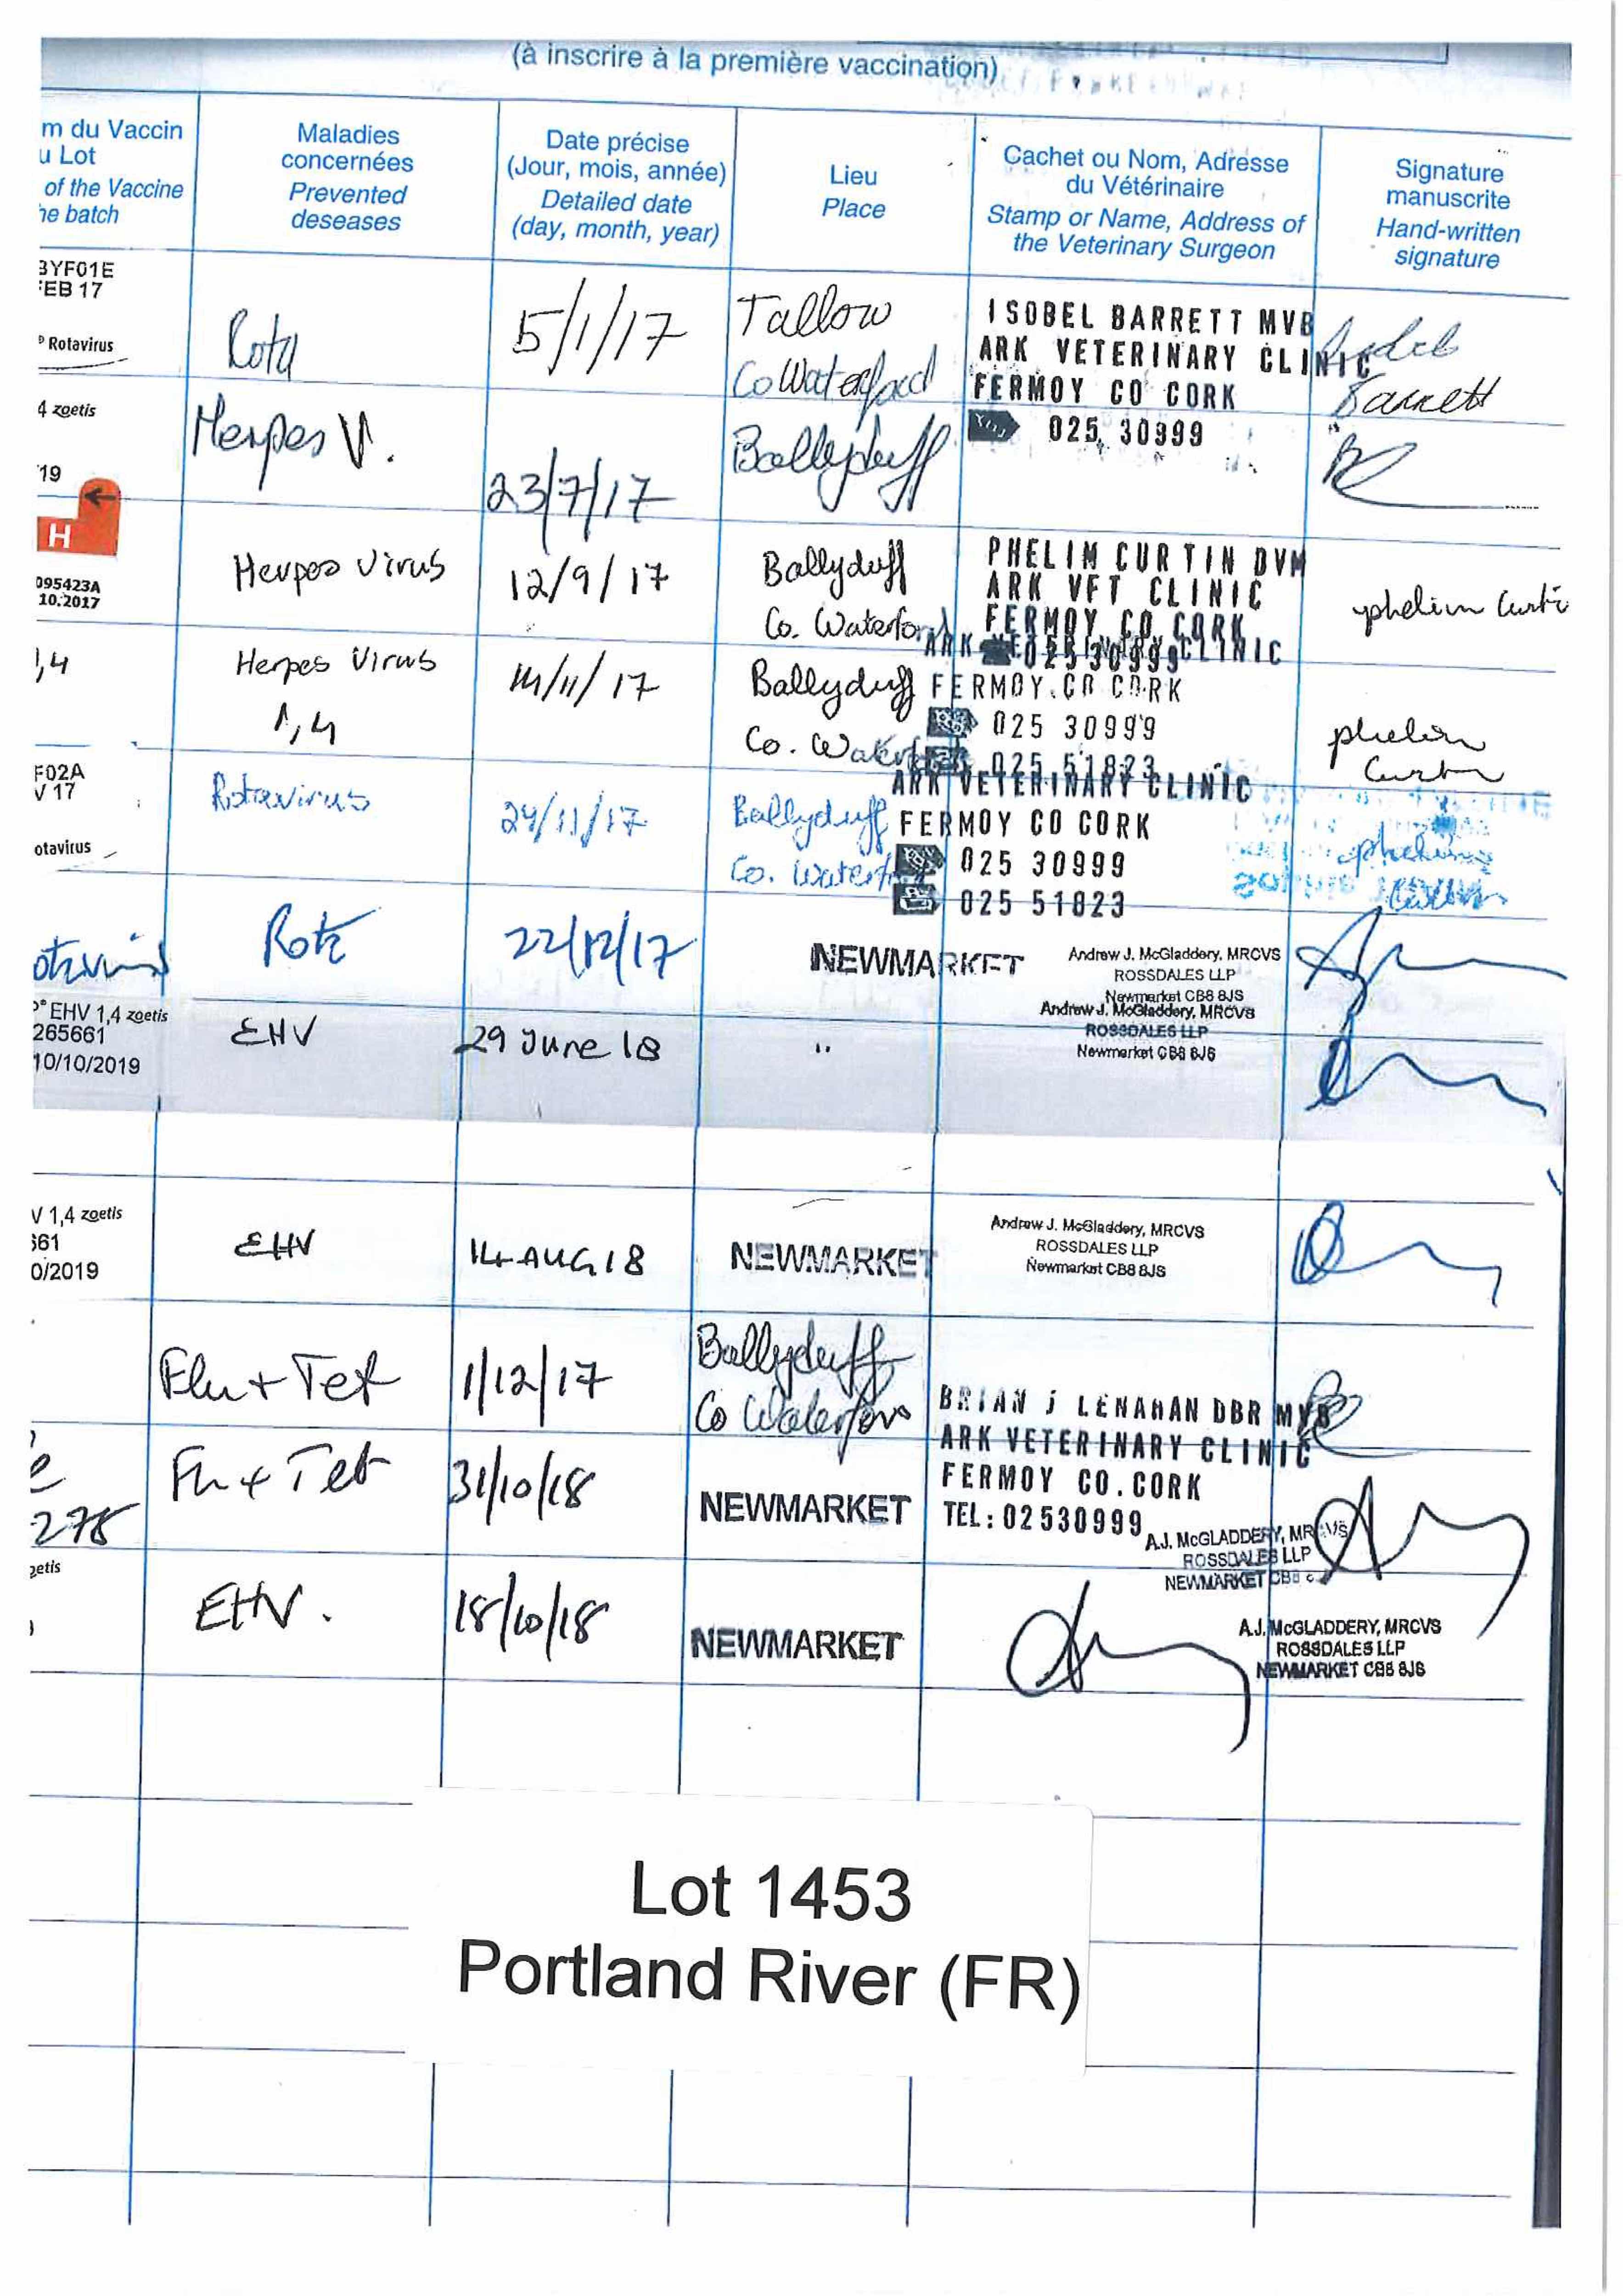 (à inscrire à la première vaccination)
m du Vaccin
u Lot
of the Vaccine
he batch
Maladies
concernées
Prevented
deseases
Date précise
(Jour, mois, année)
Detailed date
(day, month, year)
Lieu
Place
Cachet ou Nom, Adresse
du Vétérinaire
Stamp or Name, Address of
the Veterinary Surgeon
Signature
manuscrite
Hand-written
signature
3YF01E
FEB 17
Rotavirus
Rota
5/1/17
Tallow
Co Waterford
ISOBEL BARRETT MVB
ARK VETERINARY CLINIC
FERMOY CO CORK
025 30999
Isobel
Barrett
4 zoetis
19
Herpes V.
23/7/17
Ballyduff
H
095423A
10.2017
Herpes Virus
12/9/17
Ballyduff
Co. Waterford
PHELIM CURTIN DVM
ARK VET CLINIC
FERMOY CO CORK
025 30999
phelim Curti
1,4
Herpes Virus
1,4
14/11/17
Ballyduff
Co. Waterf
ARK VETERINARY CLINIC
FERMOY CO CORK
025 30999
025 51823
phelim
Curtin
F02A
V 17
otavirus
Rotavirus
24/11/17
Ballyduff
Co. Waterf
ARK VETERINARY CLINIC
FERMOY CO CORK
025 30999
025 51823
phelim
Curtin
otavirus
Rota
22/12/17
NEWMARKET
Andrew J. McGladdery, MRCVS
ROSSDALES LLP
Newmarket CB8 8JS
P° EHV 1,4 zoetis
265661
10/10/2019
EHV
29 June 18
"
Andrew J. McGladdery, MRCVS
ROSSDALES LLP
Newmarket CB8 8JS
V 1,4 zoetis
661
0/2019
EHV
14 AUG 18
NEWMARKET
Andrew J. McGladdery, MRCVS
ROSSDALES LLP
Newmarket CB8 8JS
Flu + Tet
1/12/17
Ballyduff
Co Waterford
BRIAN J LENAHAN DBR MVB
ARK VETERINARY CLINIC
FERMOY CO. CORK
TEL: 02530999
e
278
Flu + Tet
31/10/18
NEWMARKET
A.J. McGLADDERY, MRCVS
ROSSDALES LLP
NEWMARKET CB8
zoetis
EHV.
18/10/18
NEWMARKET
A.J. McGLADDERY, MRCVS
ROSSDALES LLP
NEWMARKET CB8 8JS
Lot 1453
Portland River (FR)